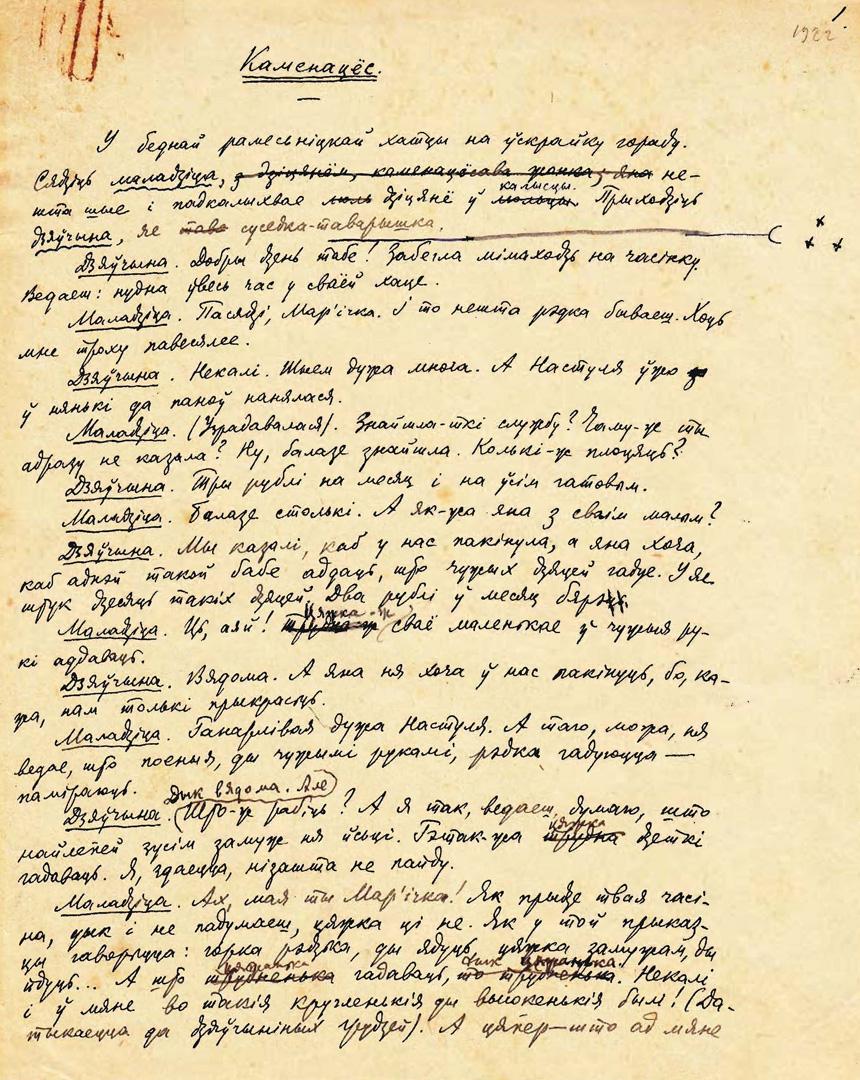 1.
1922
Каменацёс.
У беднай рамесьніцкай хатцы на ўскрайку гораду.
Сядзіць маладзіца, з дзіцянём, каменацёсава жонка; яна не-
шта шые і падкалыхвае люль дзіцянё ў люльцы калысцы. Прыходзіць
дзяўчына, яе тава суседка-таварышка.
Дзяўчына. Добры дзень табе! Забегла мімаходзь на часінку.
Ведаеш: нудна ўвесь час у сваёй хаце.
Маладзіца. Пасядзі, Мар'ічка. І то нешта рэдка бываеш. Хоць
мне троху павесялее.
Дзяўчына. Некалі. Шыем дужа многа. А Настуля ўжо
ў нянькі да паноў нанялася.
Маладзіца. (Узрадавалася). Знайшла-ткі службу? Чаму-ж ты
адразу не казала? Ну, балазе знайшла. Колькі-ж плоцяць?
Дзяўчына. Тры рублі на месяц і на ўсім гатовым.
Маладзіца. Балазе столькі. А як-жа яна з сваім малым?
Дзяўчына. Мы казалі, каб у нас пакінула, а яна хоча,
каб аднэй такой бабе аддаць, што чужых дзяцей гадуе. У яе
штук дзесяць такіх дзяцей. Два рублі ў месяц бярэ.
Маладзіца. Ці, аяй! Трудна ж Цяжка-ж сваё маленькае ў чужыя ру-
кі аддаваць.
Дзяўчына. Вядома. А яна ня хоча ў нас пакінуць, бо, ка-
жа, нам толькі прыкрасьць.
Маладзіца. Ганарлівая дужа Настуля. А таго, можа, ня
ведае, што тыя, ды чужымі рукамі, рэдка гадуюцца —
паміраюць.
Дзяўчына. Дык вядома. Але Што-ж рабіць? А я так, ведаеш, думаю, што
найлепей зусім замуж ня йсьці. Гэтак-жа трудна цяжка дзеткі
гадаваць. Я, здаецца, нізашта не пайду.
Маладзіца. Ах, мая ты Мар'ічка! Як прыдзе твая часі-
на, дык і не падумаеш, цяжка ці не. Як у той прыказ-
цы гаворыцца: горка рэдзька, ды ядуць, цяжка замужам, ды
йдуць... А што трудненька цяжанька гадаваць, то трудненька дык цяжанька. Некалі
і ў мяне во такія кругленькія ды высокенькія былі! (Да-
тыкаецца да дзяўчыніных грудзей). А цяпер—што ад мяне